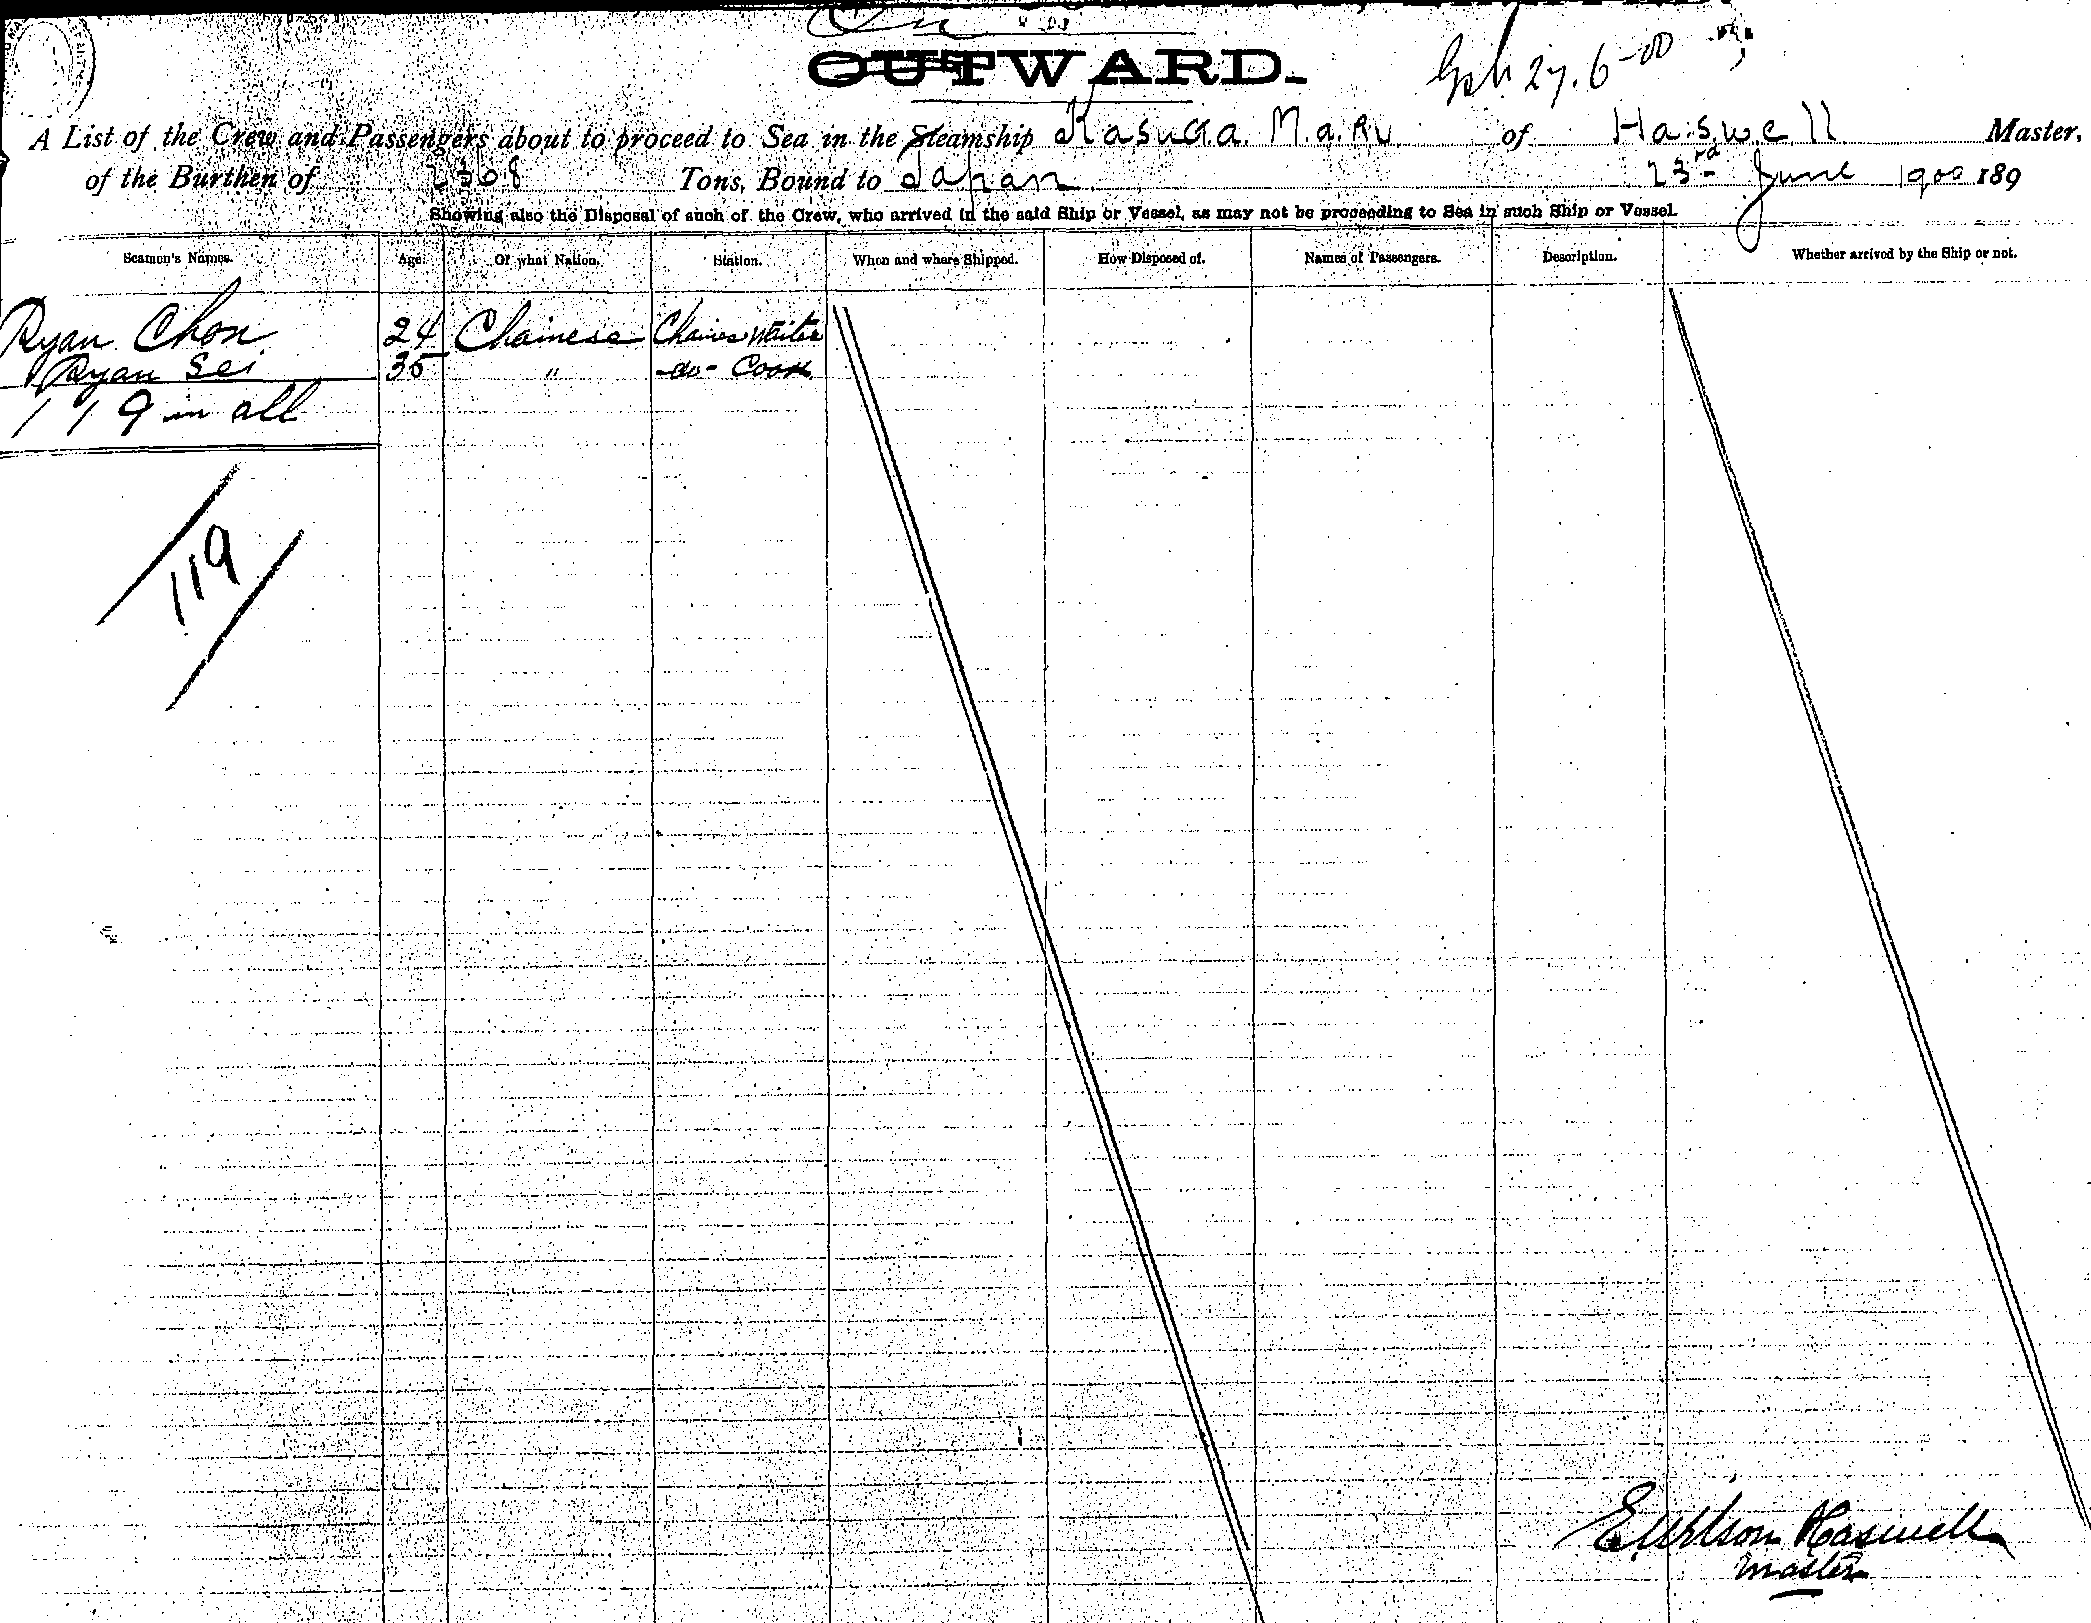 OUTWARD.
27.6-00
A List of the Crew and Passengers about to proceed to Sea in the Steamship Kasuga Maru of Haswell Master,
of the Burthen of 2368 Tons, Bound to Japan 23rd June 1900 189
Showing also the Disposal of such of the Crew, who arrived in the said Ship or Vessel, as may not be proceeding to Sea in such Ship or Vessel
Seamen's Names. Age. Of what Nation. Station. When and where Shipped. How Disposed of. Names of Passengers. Description. Whether arrived by the Ship or not.
Ryan Chon 24 Chainese Chaines Waiter
Ryan Sei 35 " -do- Cook
119 in all
119
Haswell
Master